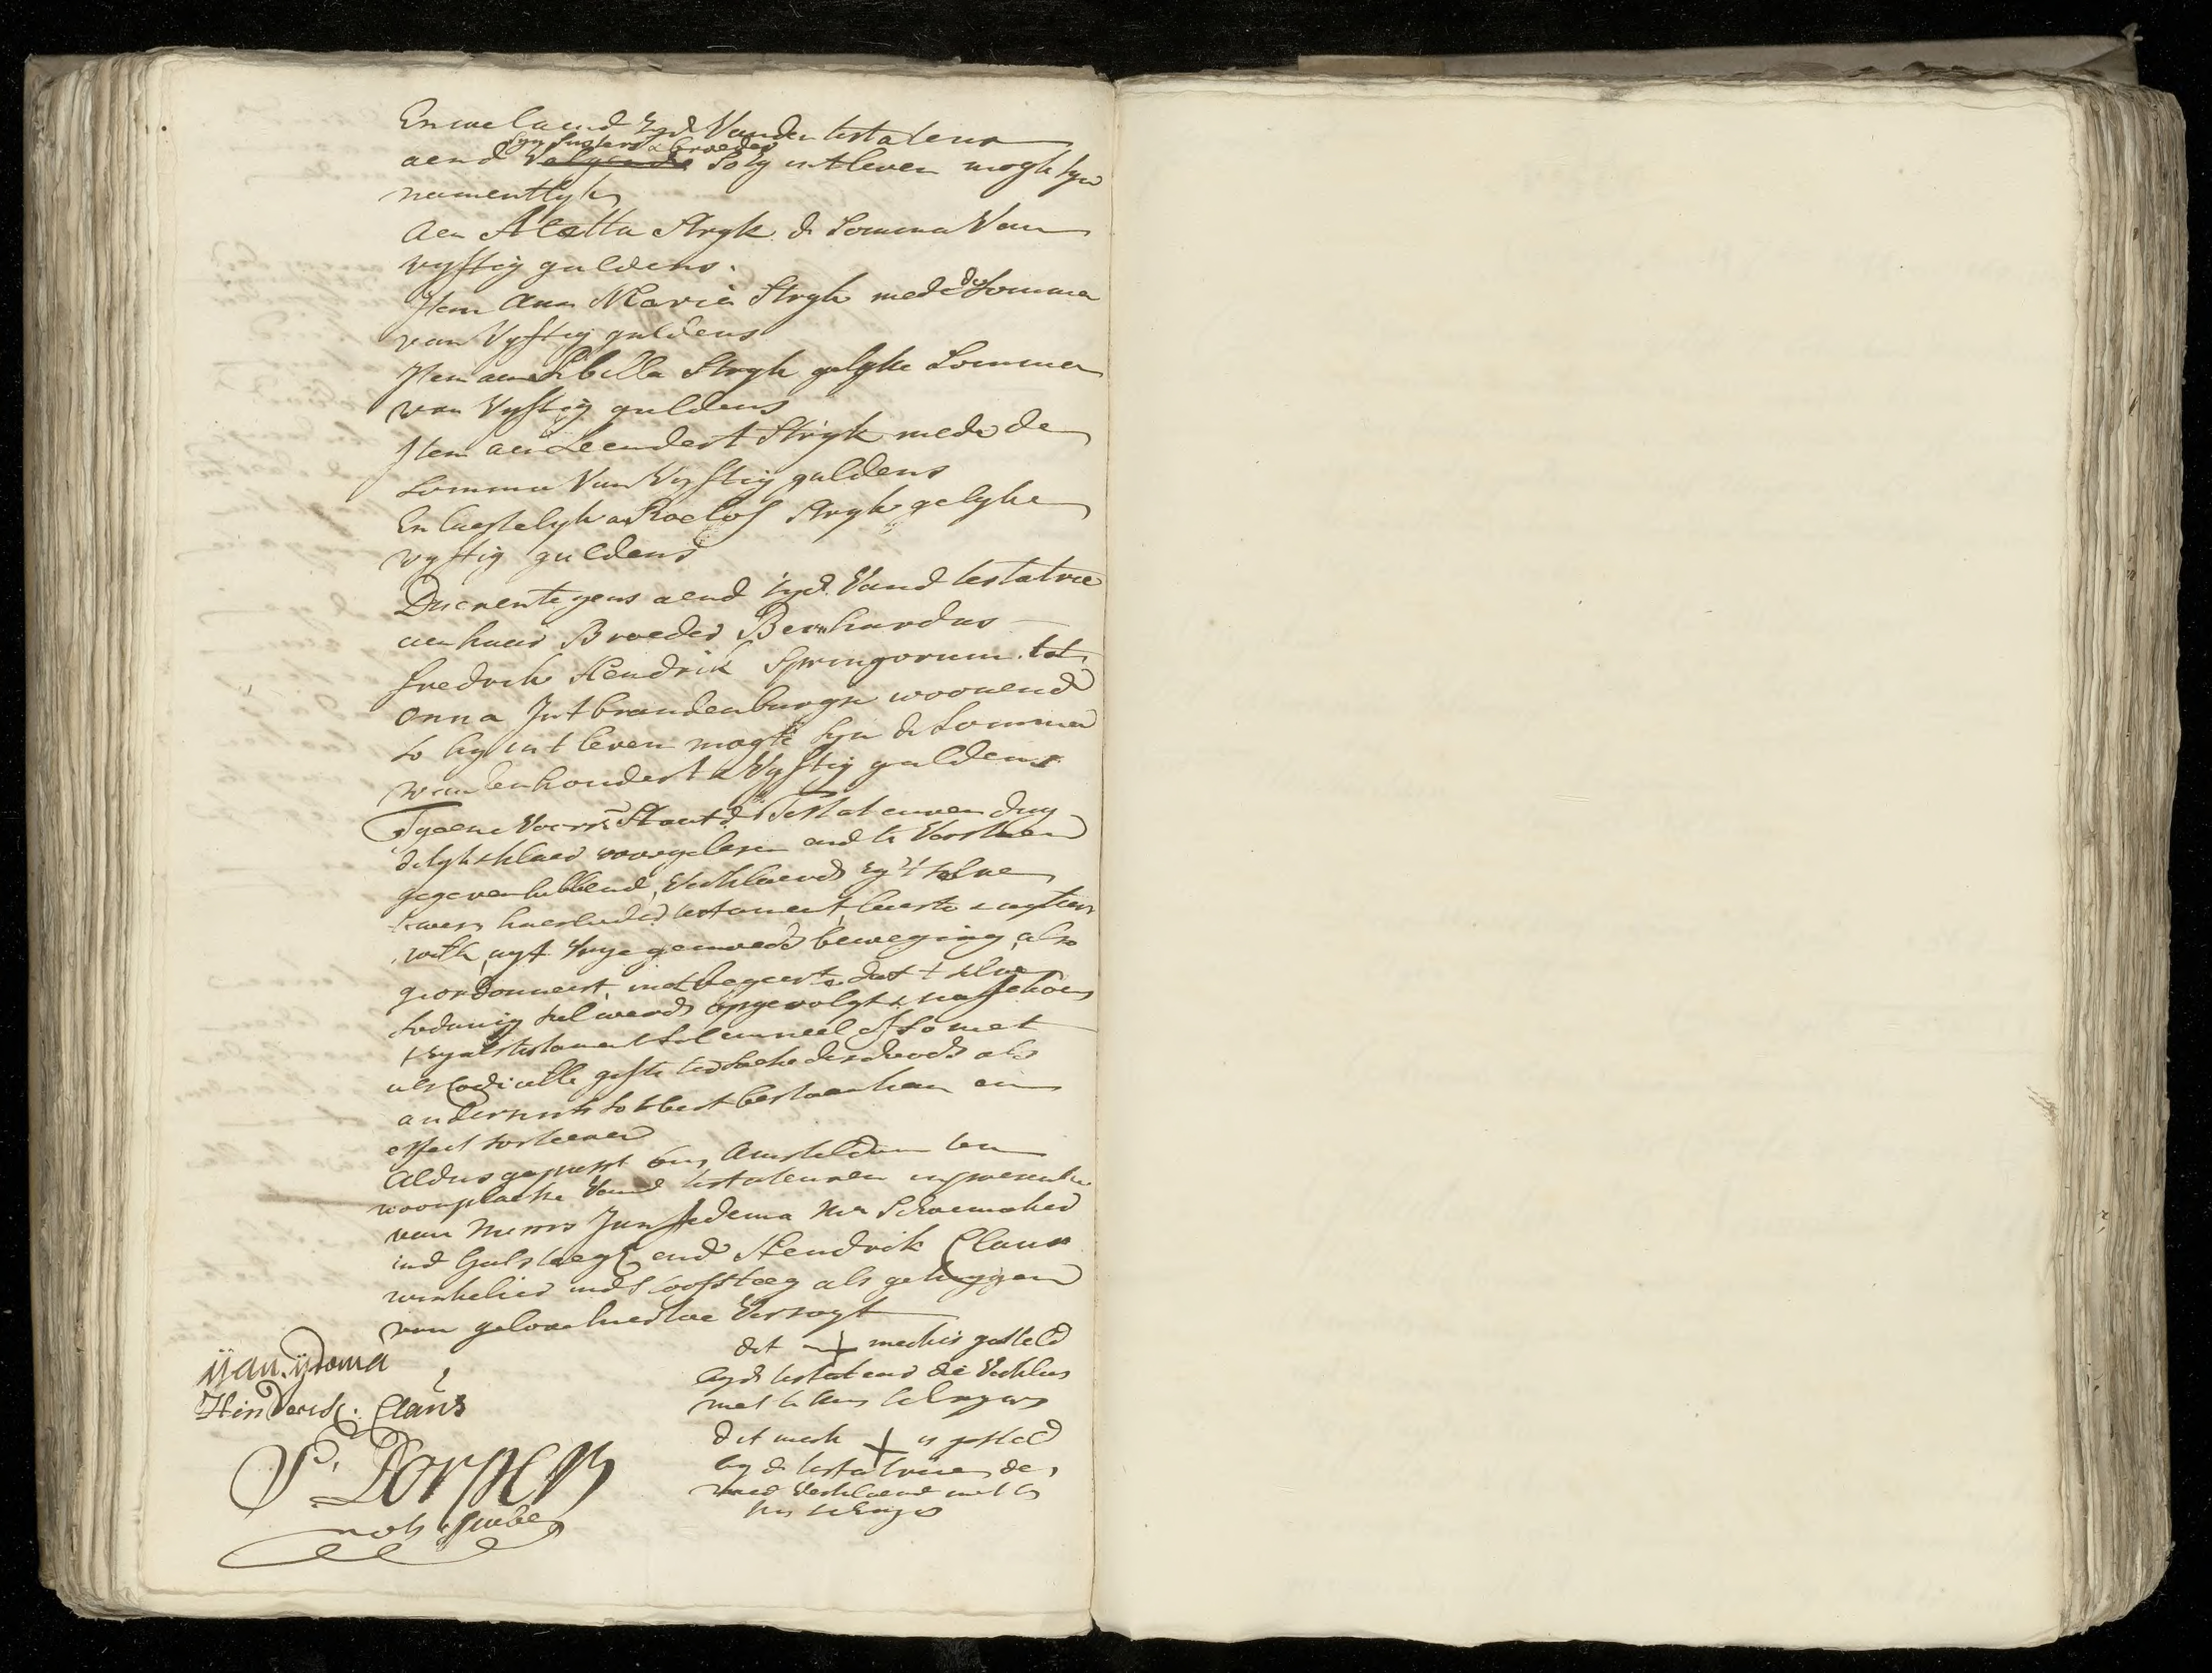 En wel aend Zyd Vanden testateur
Syn Susters & broeders
aend Volgende So zy int leven mogte syn
namentlyk
Aen Aletta Stryk de Somma Van
vyftig guldens.
Item Anna Maria Stryk mede de Somma
van Vyftig guldens
Item aen Sibilla Stryk gelyke Somma
van Vyftig guldens
Item aen Leendert Stryk mede de
Somma Van Vyftig guldens
En laestelyk a Roelof Stryk gelyke
vyftig guldens
Daerentegens aend zyd Vand testatrice
aen haer Broeder Bernhardus
fredrik Hendrik Springorum tot
onna Int brandenburgse woonend
so hy int leven mogte syn de Somma
van eenhondert & Vyftig guldens
Tgeene Voorsz Staet de Testateuren duy
delyk & klaer voorgelesen end te Verstaen
gegeven hebbend, Verklaerde zy 't selve
te wesen haerluider testament, laeste & uyterste
wille, uyt Vrye gemoeds beweging also
geordonneert, met begeerte dat t selve
sodanig sal werde opgevolgt & nagekomen
t zy als testament Solemneel of so niet
als Codicille gifte ter saeke des doods als
andersints so t best bestaen kan en
effect sorteeren
Aldus gepasst bin Amsteldam ten
woonplaetse Vand testateuren in presentie
van Jan Jedema Mr Schoemaker
ind Gals teeg end Hendrik Claus
winkelier ind hoofsteeg als getuygen
van geloove hiertoe Versogt
dit + merk is gesteld
by de testateur die Verklaerd
met te kunn schryven
dit merk + is gesteld
by de testatrice de
mede Verklaerend niet te
kun schryve
ijan. ijdema
Hinderick: Claus
P. Dorper
nots publ